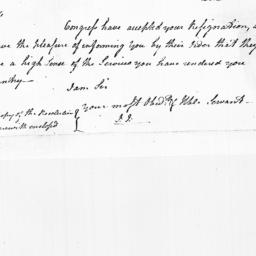 Congress have accepted your Resignation, a
ve the Pleasure of informing you by their Order that they
e a high Sense of the Services you have rendered your
ntry—
I am Sir
your most Obedt & Hble. Servant—
J. J.
opy of the Resolution
erewith enclosed